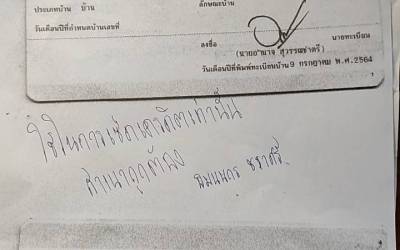 ประเภทบ้าน บ้าน
ลักษณะบ้าน
วันเดือนปีที่กำหนดบ้านเลขที่
ลงชื่อ นายทะเบียน
(นายอำนาจ สุวรรณชาตรี)
วันเดือนปีที่พิมพ์ทะเบียนบ้าน 9 กรกฎาคม พ.ศ.2564
ใช้ในการเช็คเครดิตเท่านั้น
สำเนาถูกต้อง